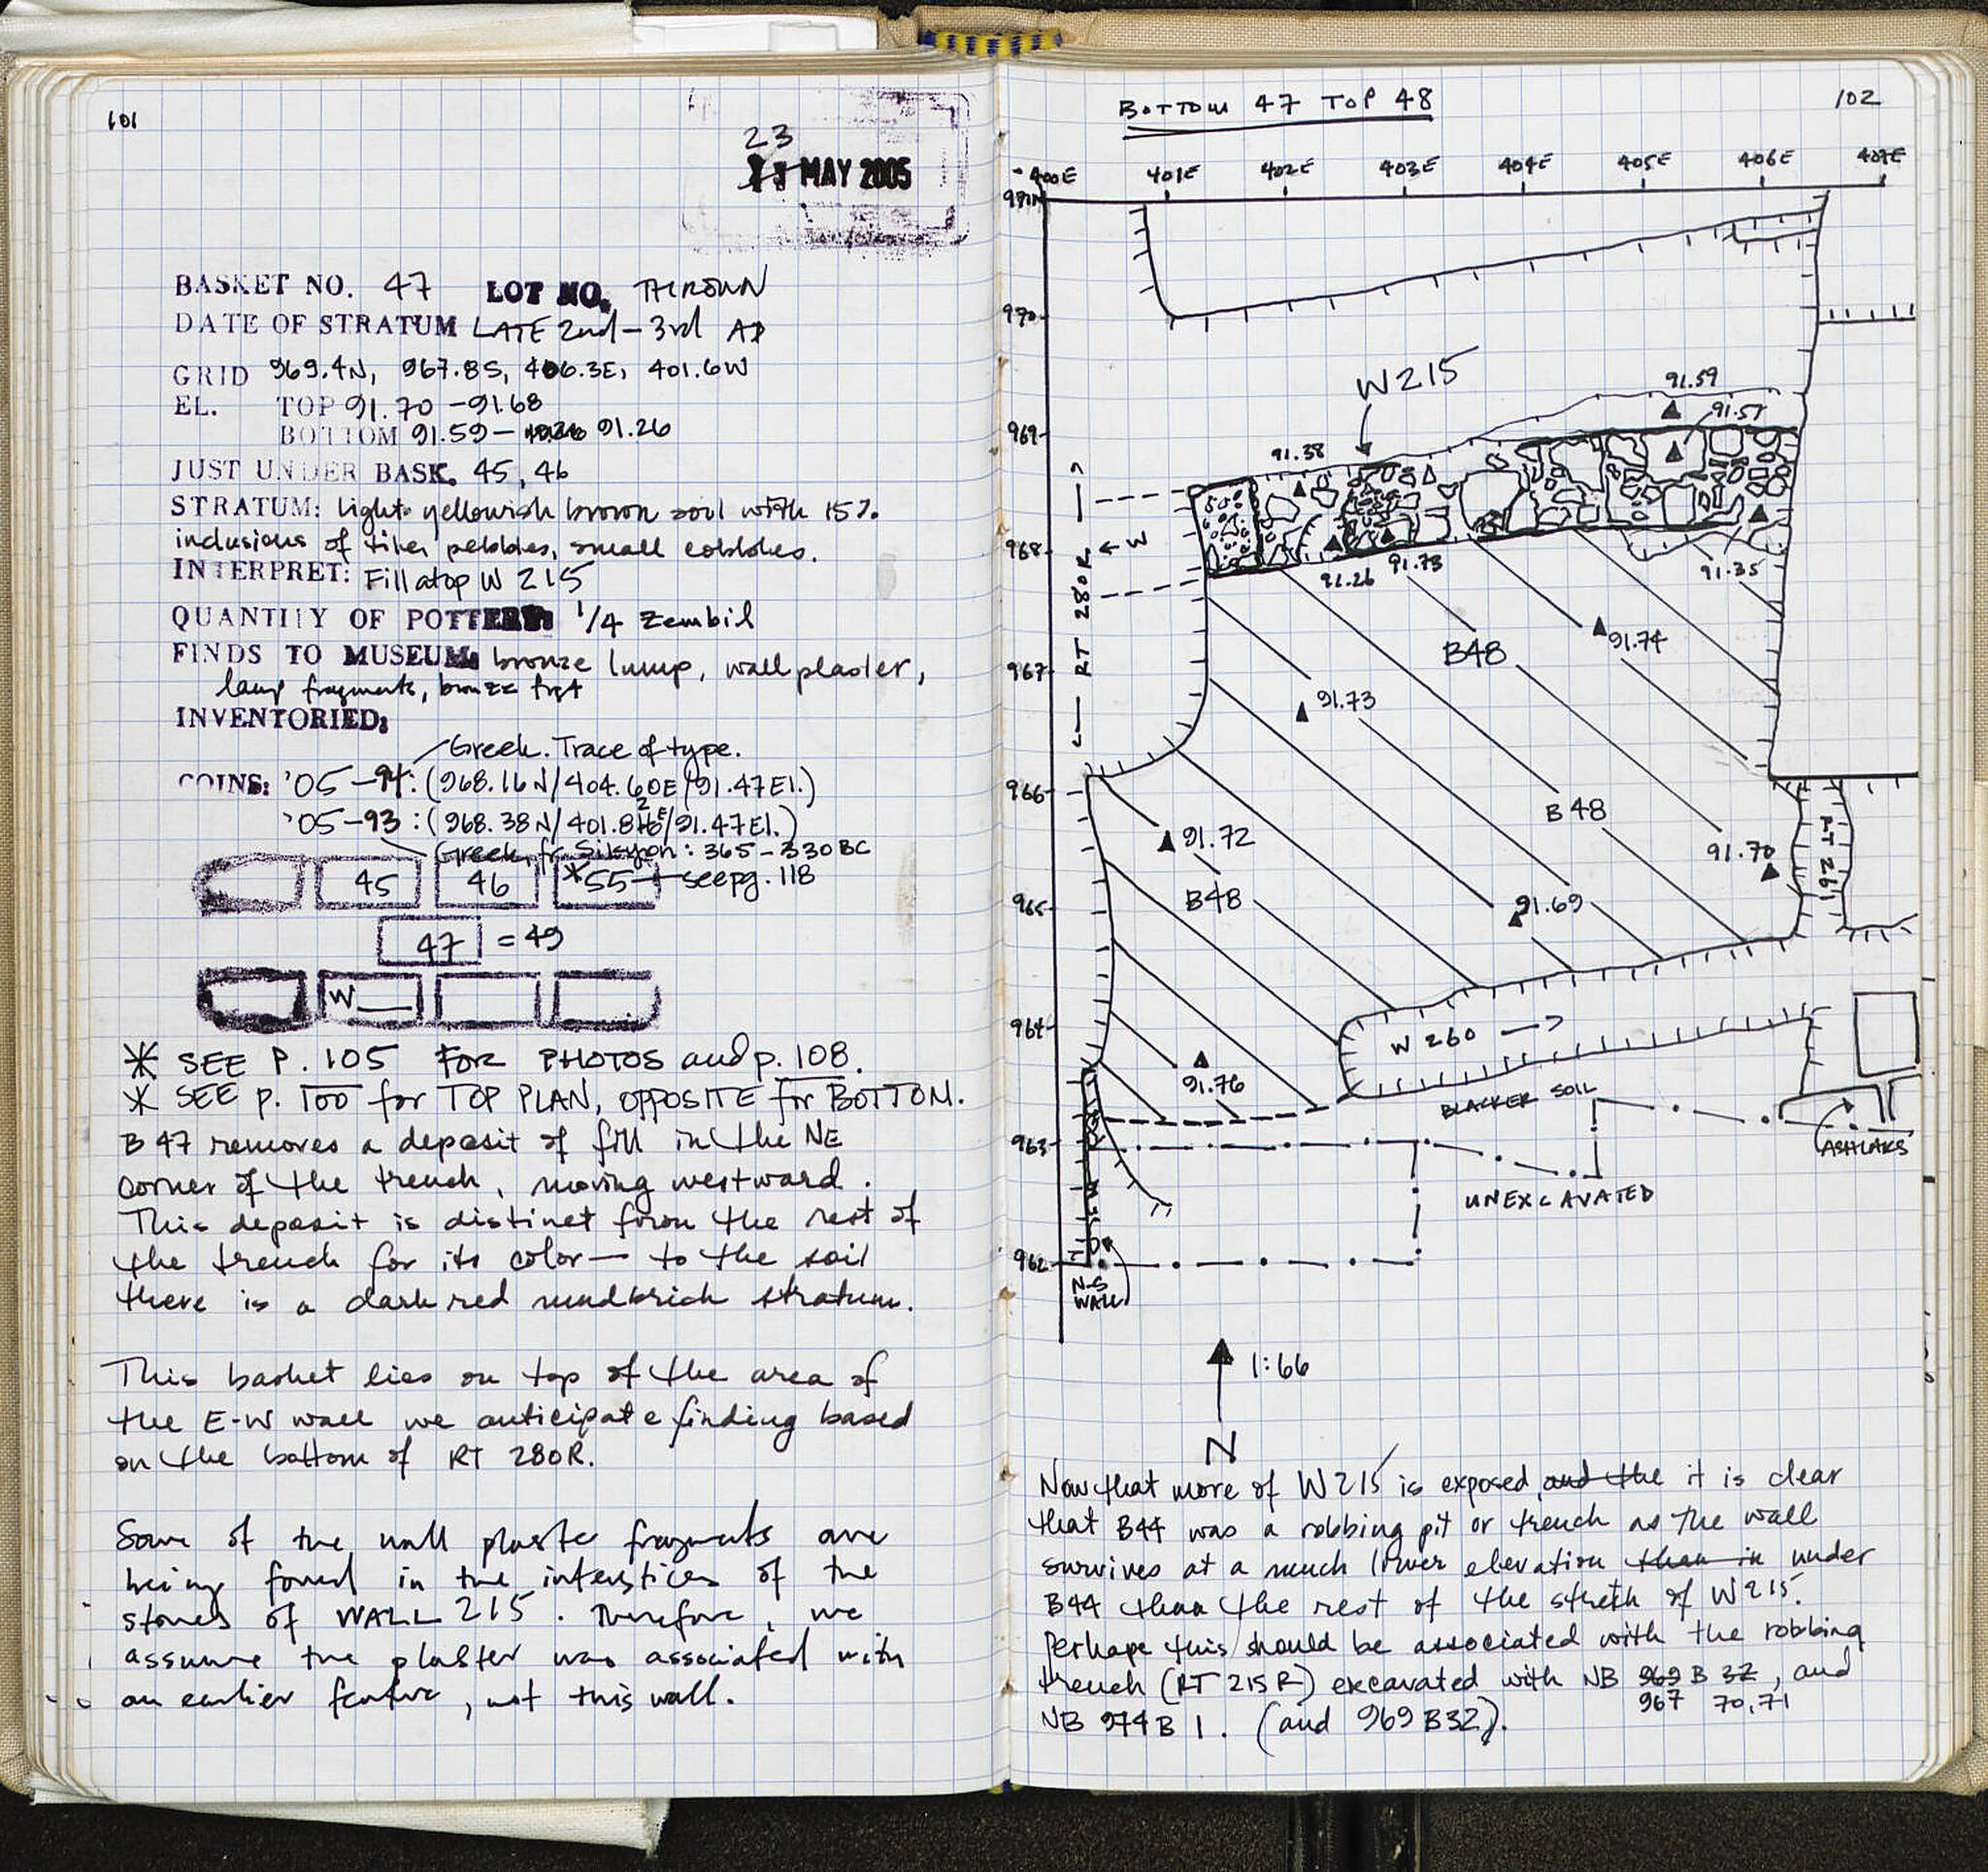 101
23
MAY 2005
BASKET NO. 47 LOT NO. THROWN
DATE OF STRATUM LATE 2nd - 3rd AD
GRID 969.4N, 967.8S, 406.3E, 401.6W
EL. TOP 91.70 - 91.68
BOTTOM 91.59 - 91.26
JUST UNDER BASK. 45, 46
STRATUM: light yellowish brown soil with 15%
inclusions of tiles, pebbles, small cobbles.
INTERPRET: Fill atop W 215
QUANTITY OF POTTERY: 1/4 Zembil
FINDS TO MUSEUM: bronze lump, wall plaster,
lamp fragments, bronze frgt
INVENTORIED:
Greek. Trace of type.
COINS: '05-94: (968.16N/404.60E/91.47El.)
'05-93: (968.38N/401.82E/91.47El.)
Greek, fr. Sikyon: 365-330 BC
45 46 *55 - see pg. 118
47 = 49
W
* SEE P. 105 FOR PHOTOS and p. 108.
* SEE p. 100 for TOP PLAN, OPPOSITE for BOTTOM.
B 47 removes a deposit of fill in the NE
corner of the trench, moving westward.
This deposit is distinct from the rest of
the trench for its color — to the soil
there is a dark red mudbrick stratum.
This basket lies on top of the area of
the E-W wall we anticipate finding based
on the bottom of RT 280R.
Some of the wall plaster fragments are
being found in the interstices of the
stones of WALL 215. Therefore, we
assume the plaster was associated with
an earlier feature, not this wall.
BOTTOM 47 TOP 48
102
400E 401E 402E 403E 404E 405E 406E 407E
971N
970
W215
91.59
91.57
969
91.38
968
← W
91.26
91.73
91.35
RT 280R
B48
91.74
967
91.73
966
B48
91.72
91.70
RT 261
B48
965
91.69
964
W 260
91.76
BLACKER SOIL
963
ASHLARS
UNEXCAVATED
962
N-S
WALL
1:66
N
Now that more of W215 is exposed, and the it is clear
that B44 was a robbing pit or trench as the wall
survives at a much lower elevation than in under
B44 than the rest of the streth of W215.
Perhaps this should be associated with the robbing
trench (RT 215R) excavated with NB 969 B 32, and
967 70,71
NB 974 B 1. (and 969 B32).